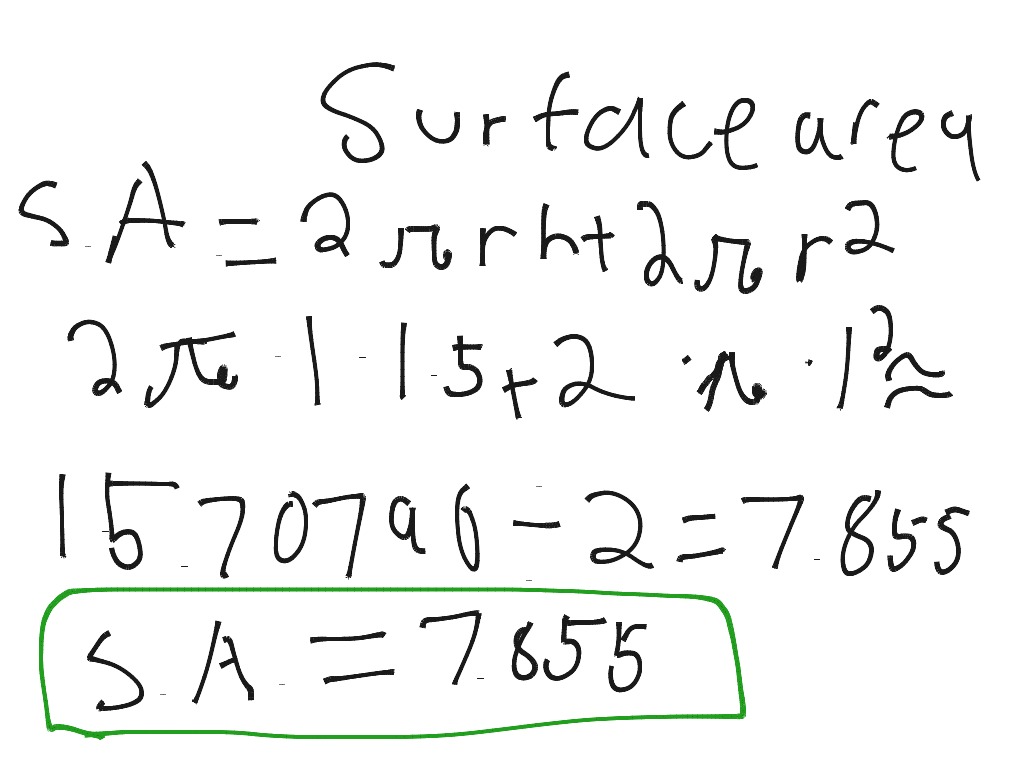 Surface area
S.A = 2πrh+2πr²
2π·1·1.5+2·π·1²≈
15.70796-2=7.855
S.A. = 7.855